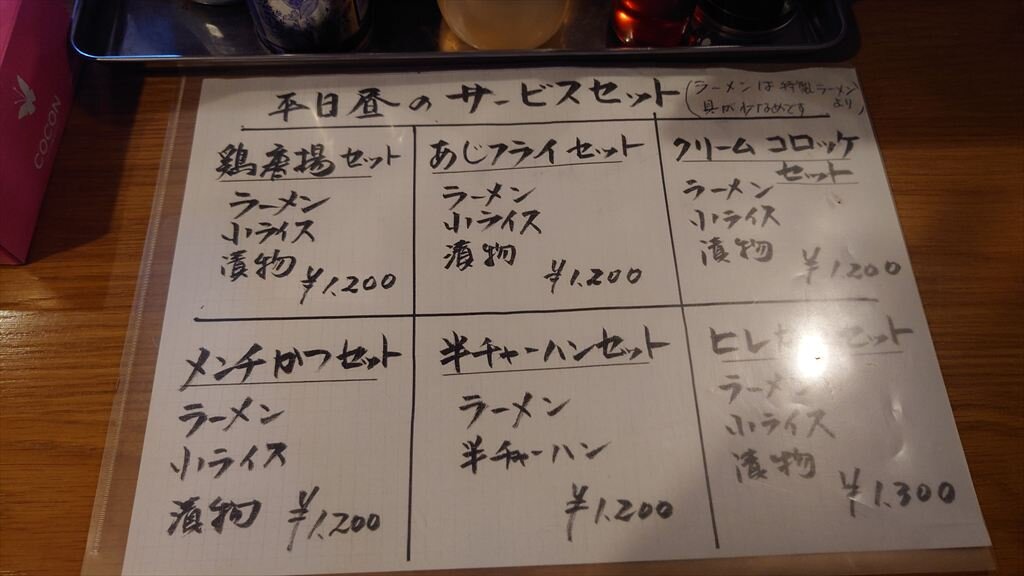 COCON
平日昼のサービスセット
(ラーメンは特製ラーメンより
具が少なめです)
鶏唐揚セット
ラーメン
小ライス
漬物
¥1,200
あじフライセット
ラーメン
小ライス
漬物
¥1,200
クリームコロッケ
セット
ラーメン
小ライス
漬物
¥1,200
メンチかつセット
ラーメン
小ライス
漬物
¥1,200
半チャーハンセット
ラーメン
半チャーハン
¥1,200
ヒレ セット
ラーメン
小ライス
漬物
¥1,300